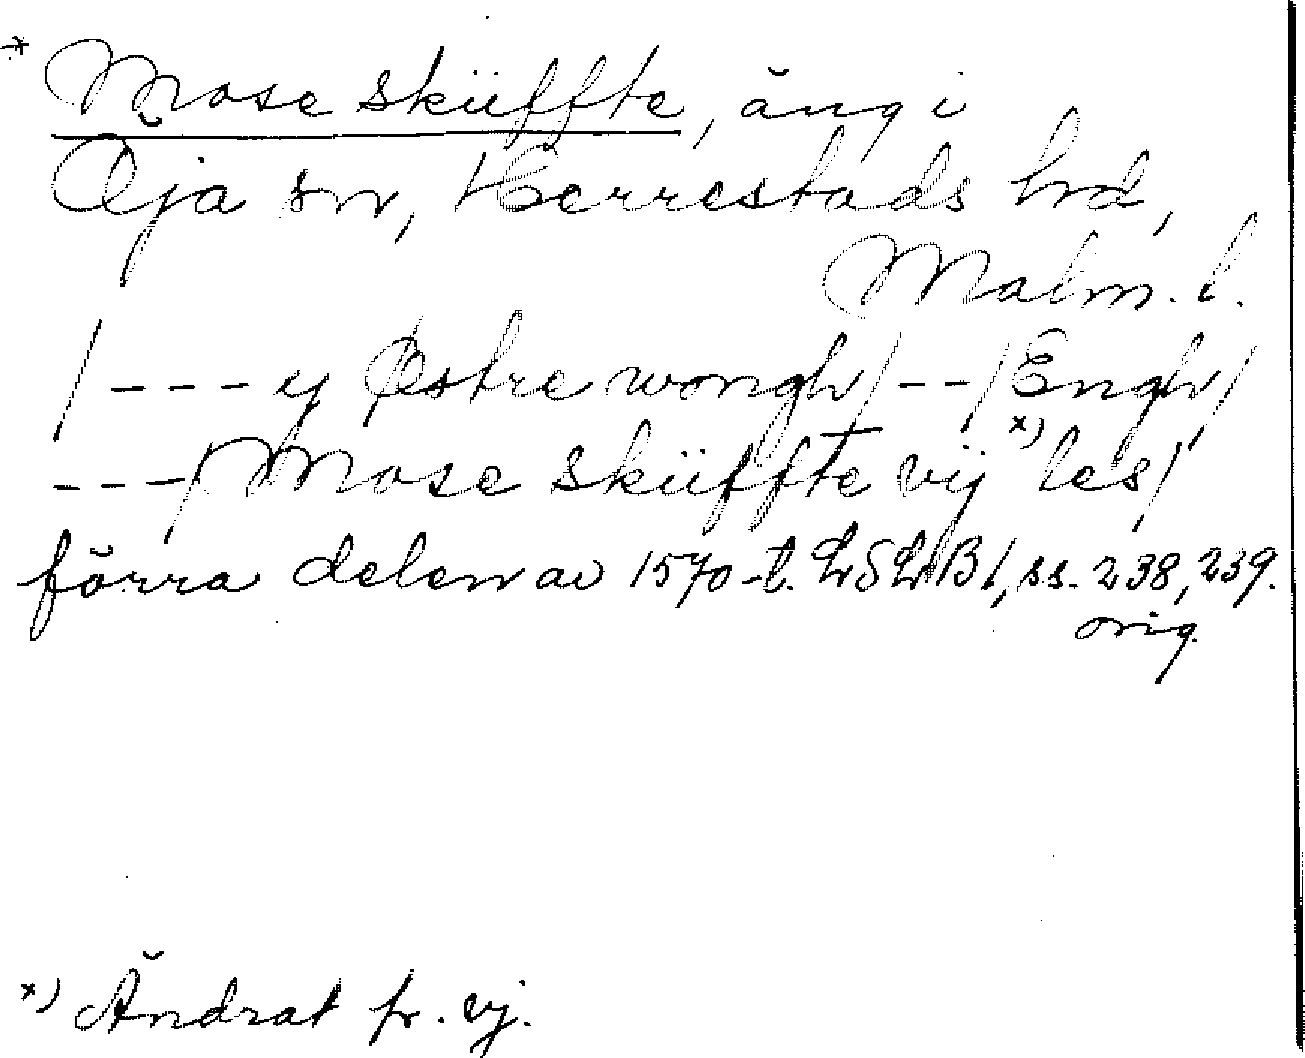 * Mose sküffte, äng i
Öja sn, Herrestads hd,
Malm. l.
/---y Østre wongh/--/Engh/
---/Mose sküffte vij x) les/
förra delen av 1570-t. LSLB 1, ss. 238, 239.
orig.
x) Ändrat fr. vj.